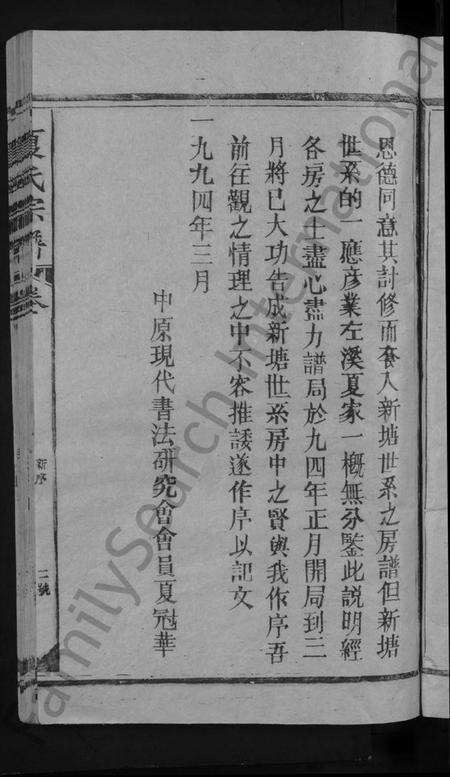 恩德同意其討修而奪入新塘世系之房譜但新塘
世系的一應彦業在溪夏家一概無分鑒此説明經
各房之士盡心盡力譜局於九四年正月開局到三
月將已大功告成新塘世系房中之賢與我作序吾
前往觀之情理之中不容推諉遂作序以記文
一九九四年三月
中原現代書法研究會會員夏冠華
夏氏宗譜
卷
新序
二號
FamilySearch International